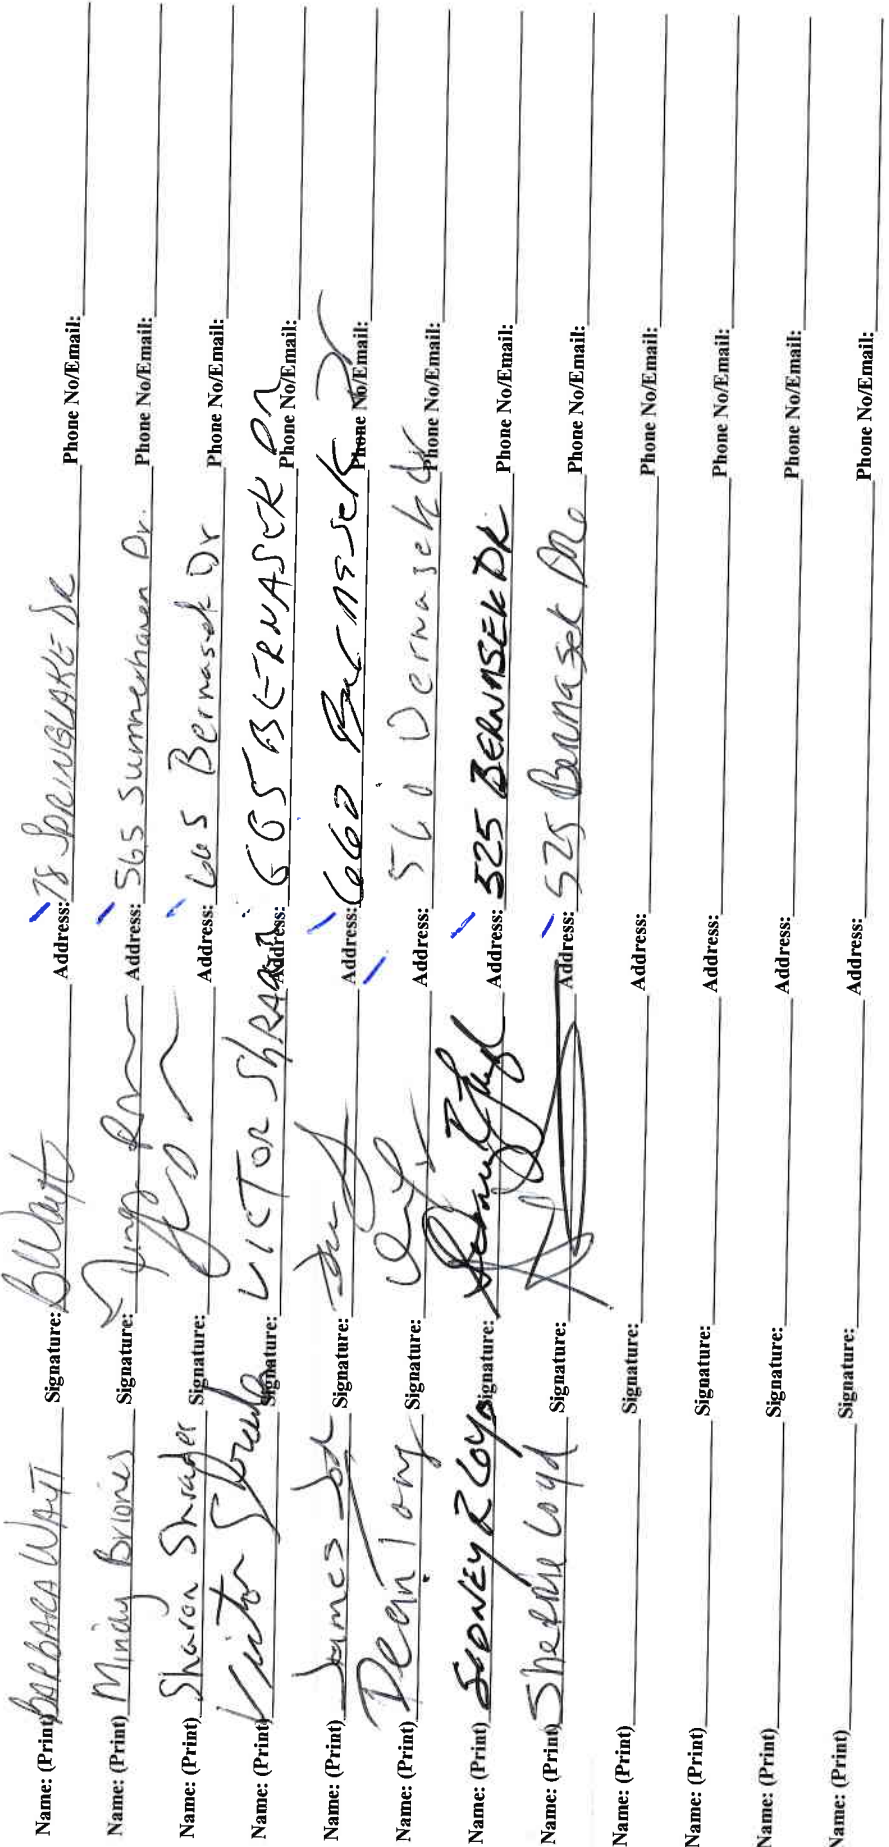 Name: (Print) BARBARA WAYT Signature: BWayt Address: 78 SPRINGLAKE DR Phone No/Email:
Name: (Print) Mindy Briones Signature: Address: 565 Summerhaven Dr. Phone No/Email:
Name: (Print) Sharon Shrader Signature: Address: 665 Bernasek Dr Phone No/Email:
Name: (Print) Victor Signature: VICTOR ShRADER Address: 665 BERNASEK DR Phone No/Email:
Name: (Print) James Signature: Address: 660 Bernasek Dr Phone No/Email:
Name: (Print) Dean Signature: Address: 560 Bernasek dr Phone No/Email:
Name: (Print) SIDNEY R LOYD Signature: Address: 525 BERNASEK DR Phone No/Email:
Name: (Print) Sherrie Loyd Signature: Address: 525 Bernasek Phone No/Email:
Name: (Print) Signature: Address: Phone No/Email:
Name: (Print) Signature: Address: Phone No/Email:
Name: (Print) Signature: Address: Phone No/Email:
Name: (Print) Signature: Address: Phone No/Email: